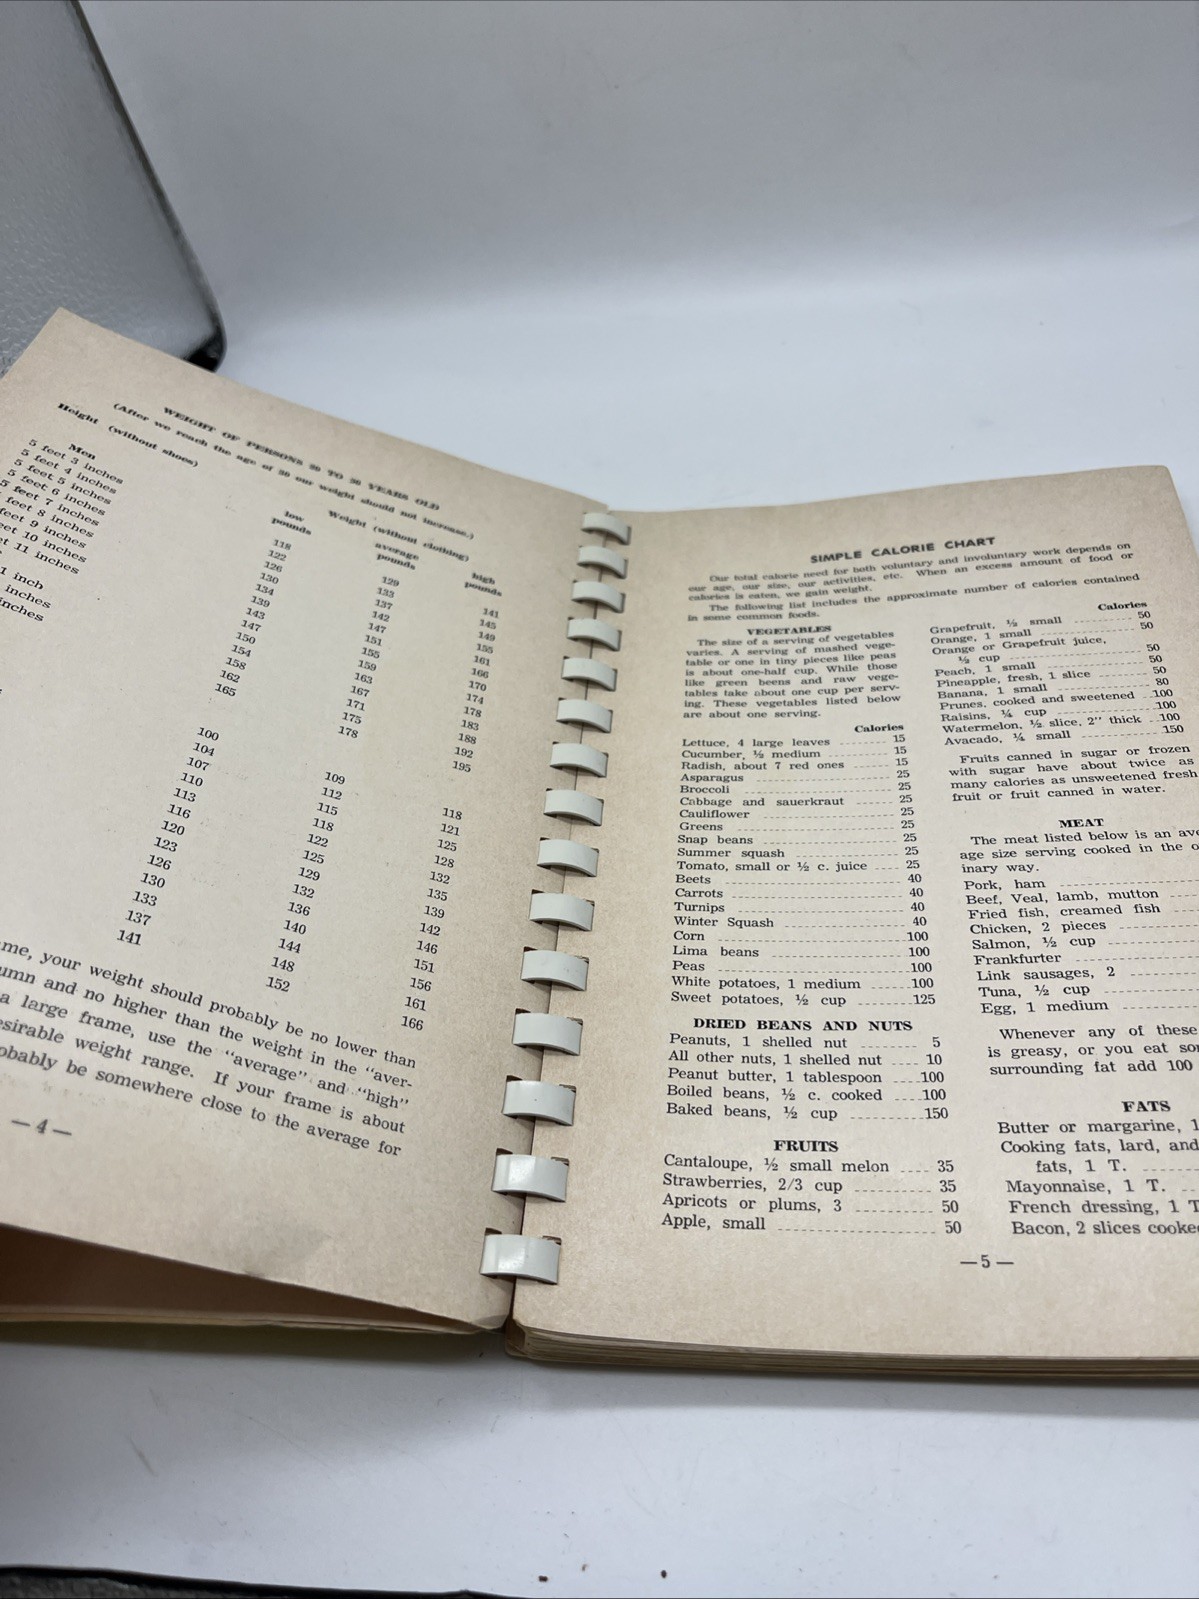 WEIGHT OF PERSONS 20 TO 30 YEARS OLD
(After we reach the age of 30 our weight should not increase.)
Height (without shoes)
Weight (without clothing)
low average high
pounds pounds pounds
Men
5 feet 3 inches 118 129 141
5 feet 4 inches 122 133 145
5 feet 5 inches 126 137 149
5 feet 6 inches 130 142 155
5 feet 7 inches 134 147 161
feet 8 inches 139 151 166
feet 9 inches 143 155 170
eet 10 inches 147 159 174
et 11 inches 150 163 178
154 167 183
1 inch 158 171 188
inches 162 175 192
inches 165 178 195
100 109 118
104 112 121
107 115 125
110 118 128
113 122 132
116 125 135
120 129 139
123 132 142
126 136 146
130 140 151
133 144 156
137 148 161
141 152 166
me, your weight should probably be no lower than
umn and no higher than the weight in the "aver-
a large frame, use the "average" and "high"
esirable weight range. If your frame is about
obably be somewhere close to the average for
—4—
SIMPLE CALORIE CHART
Our total calorie need for both voluntary and involuntary work depends on
our age, our size, our activities, etc. When an excess amount of food or
calories is eaten, we gain weight.
The following list includes the approximate number of calories contained
in some common foods.
VEGETABLES
The size of a serving of vegetables
varies. A serving of mashed vege-
table or one in tiny pieces like peas
is about one-half cup. While those
like green beens and raw vege-
tables take about one cup per serv-
ing. These vegetables listed below
are about one serving.
Calories
Lettuce, 4 large leaves 15
Cucumber, ½ medium 15
Radish, about 7 red ones 15
Asparagus 25
Broccoli 25
Cabbage and sauerkraut 25
Cauliflower 25
Greens 25
Snap beans 25
Summer squash 25
Tomato, small or ½ c. juice 25
Beets 40
Carrots 40
Turnips 40
Winter Squash 40
Corn 100
Lima beans 100
Peas 100
White potatoes, 1 medium 100
Sweet potatoes, ½ cup 125
DRIED BEANS AND NUTS
Peanuts, 1 shelled nut 5
All other nuts, 1 shelled nut 10
Peanut butter, 1 tablespoon 100
Boiled beans, ½ c. cooked 100
Baked beans, ½ cup 150
FRUITS
Cantaloupe, ½ small melon 35
Strawberries, 2/3 cup 35
Apricots or plums, 3 50
Apple, small 50
Calories
Grapefruit, ½ small 50
Orange, 1 small 50
Orange or Grapefruit juice,
½ cup 50
Peach, 1 small 50
Pineapple, fresh, 1 slice 50
Banana, 1 small 80
Prunes, cooked and sweetened 100
Raisins, ¼ cup 100
Watermelon, ½ slice, 2" thick 100
Avacado, ¼ small 150
Fruits canned in sugar or frozen
with sugar have about twice as
many calories as unsweetened fresh
fruit or fruit canned in water.
MEAT
The meat listed below is an ave
age size serving cooked in the o
inary way.
Pork, ham
Beef, Veal, lamb, mutton
Fried fish, creamed fish
Chicken, 2 pieces
Salmon, ½ cup
Frankfurter
Link sausages, 2
Tuna, ½ cup
Egg, 1 medium
Whenever any of these
is greasy, or you eat so
surrounding fat add 100
FATS
Butter or margarine, 1
Cooking fats, lard, and
fats, 1 T.
Mayonnaise, 1 T.
French dressing, 1 T
Bacon, 2 slices cooke
—5—